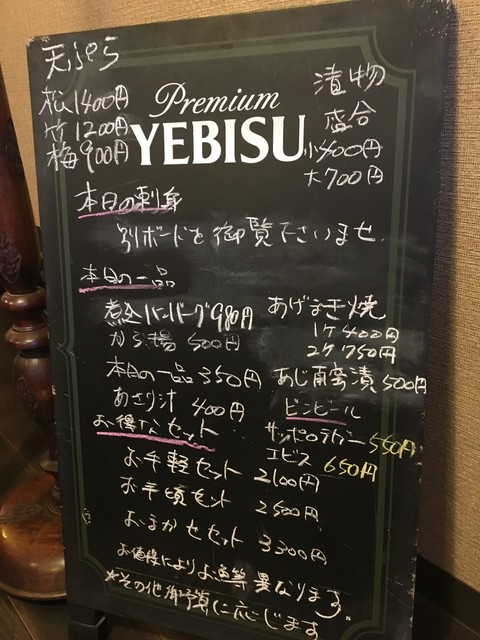 天ぷら
松1400円
竹1200円
梅900円
Premium
YEBISU
漬物
盛合
小400円
大700円
本日の刺身
別ボードを御覧下さいませ
本日の一品
煮込ハンバーグ980円
から揚500円
本日の一品350円
あさり汁 400円
あげまき焼
1ケ400円
2ケ750円
あじ南蛮漬500円
ビンビール
サッポロラガー550円
エビス 650円
お得なセット
お手軽セット 2100円
お手頃セット 2500円
おまかせセット 3300円
お値段によりお通等異なります
*その他御予算に応じます